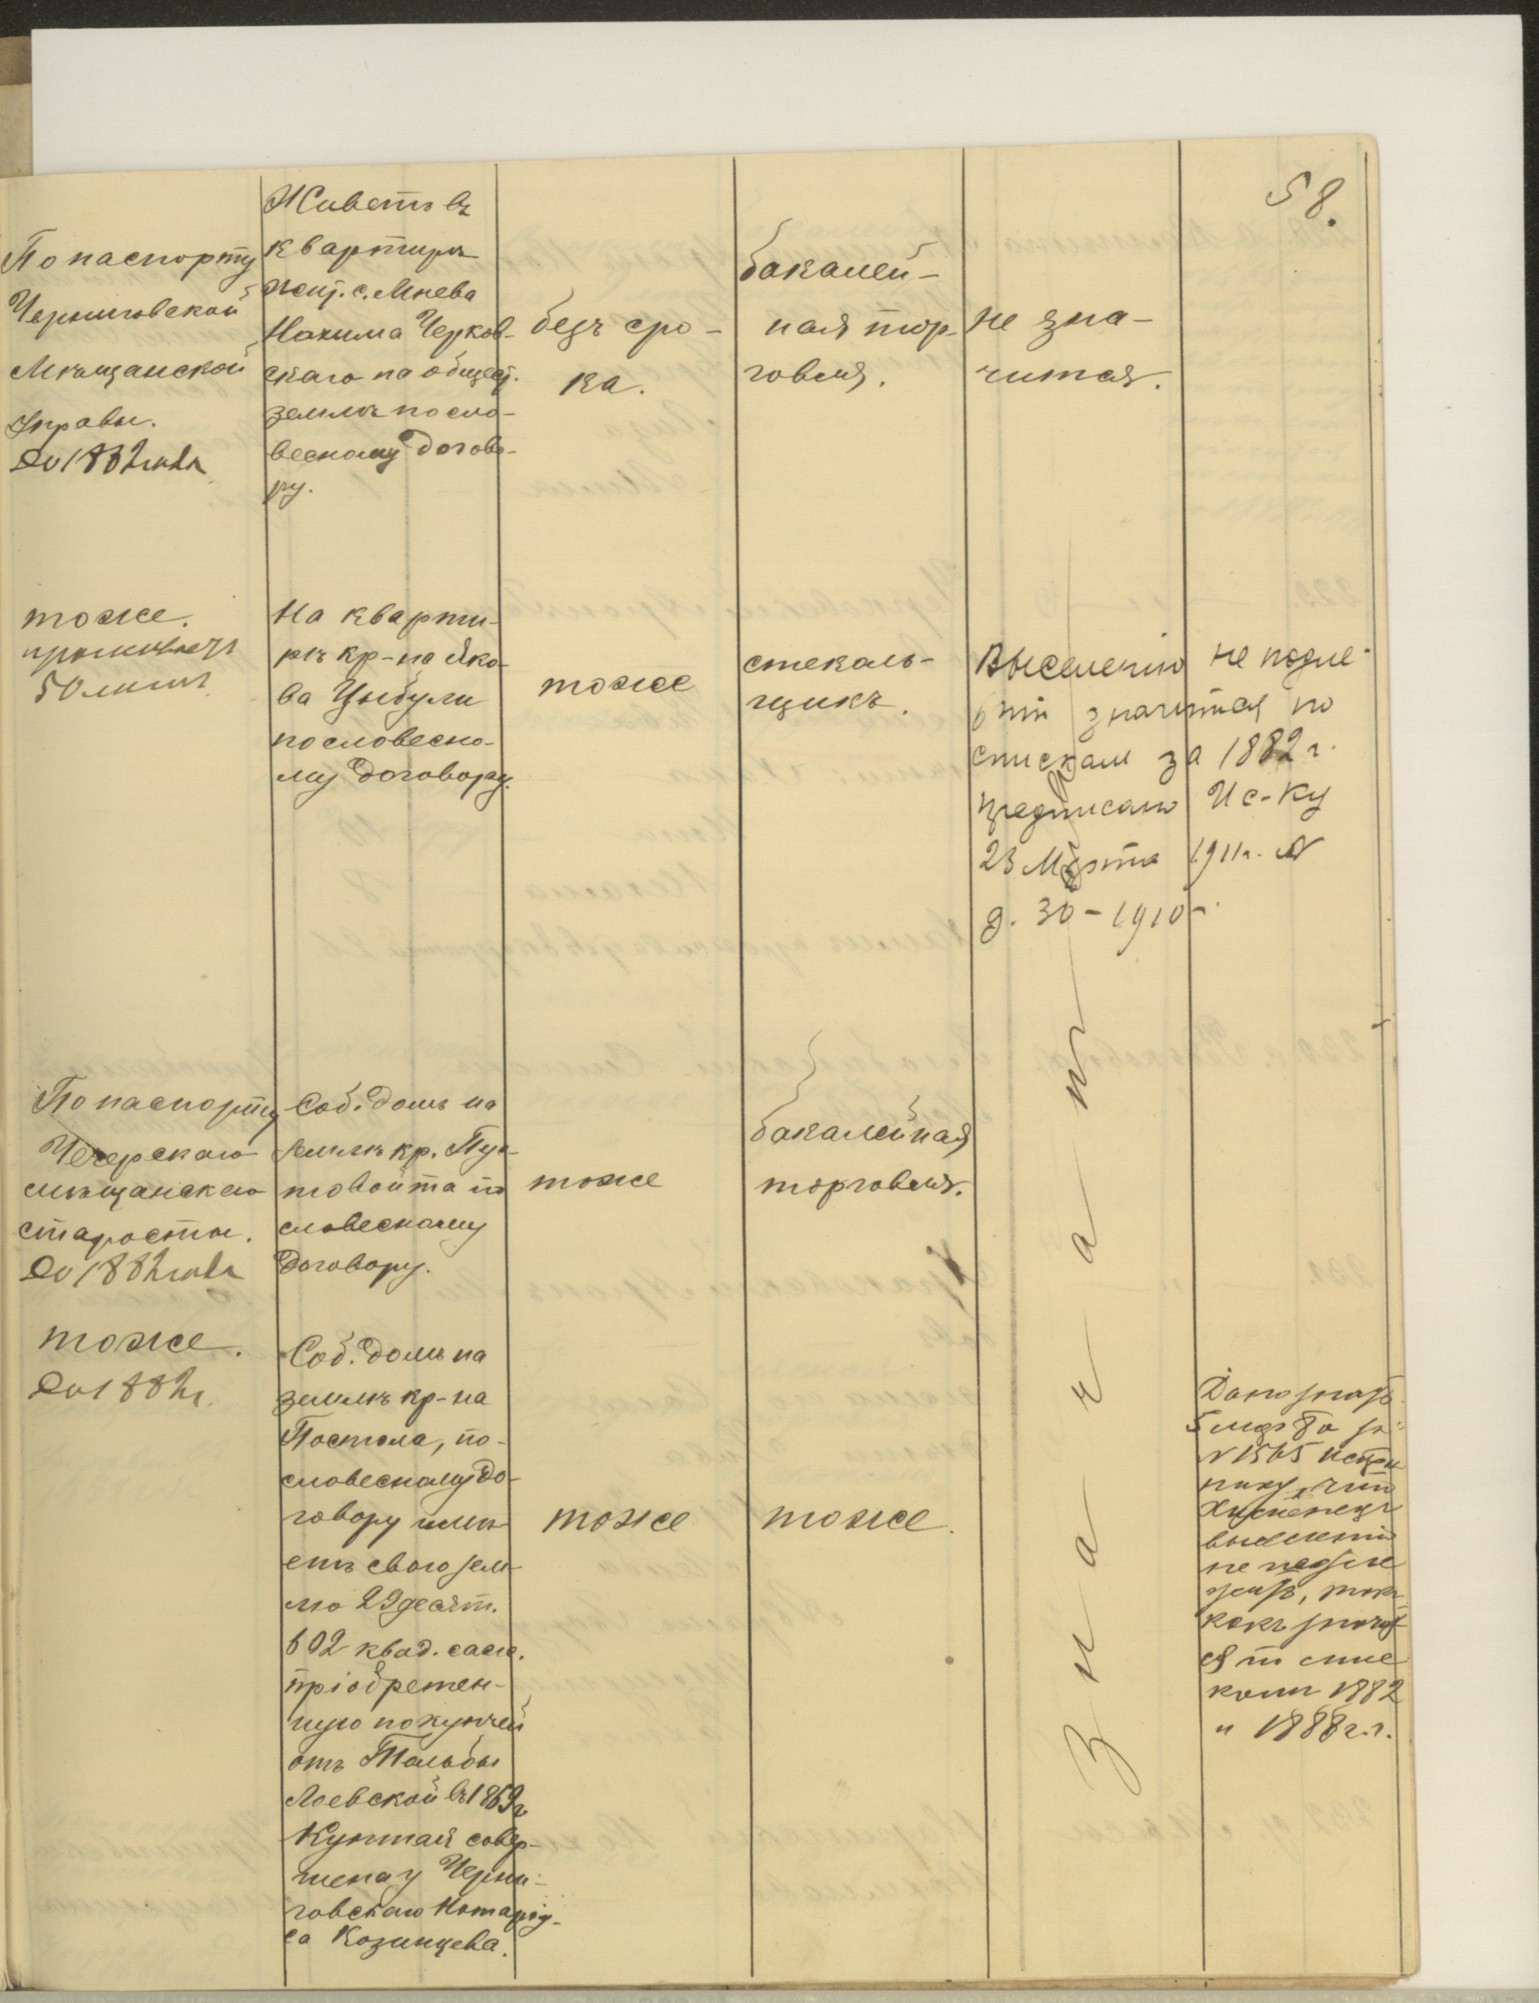 58.
По паспорту
Черниговской
Мѣщанской
управы.
До 1882 года
Живетъ въ
квартирѣ
жит. с. Мнева
Нохима Черков-
скаго на общест.
землѣ по сло-
весному догово-
ру.
безъ сро-
ка.
бакалей-
ная тор-
говля.
не зна-
чится.
тоже.
проживаетъ
50 лѣтъ
На кварти-
рѣ кр-на Яко-
ва Цыбули
по словесно-
му договору.
тоже
стеколь-
щикъ.
Выселенію не подле-
значится по
спискам за 1882 г.
предписано Ис-ку
23 Марта 1911 г. №
д. 30-1910 г.
По паспорту
Чечерскаго
мѣщанскаго
старосты.
До 1882 года
Соб. домъ на
землѣ кр. Пус-
товойта по
словесному
договору.
тоже
бакалейная
торговля.
тоже.
До 1882 г.
Соб. домъ на
землѣ кр-на
Постола, по
словесному до-
говору имѣ-
етъ свою зем-
лю 29 десят.
602 квад. саж.
пріобретен-
ную покупкой
отъ
Лоевской въ 1869 г.
Купчая совер-
шена у Черни-
говскаго Нотаріу-
са Козинцева.
тоже
тоже.
Значатъ
Дано знать
5 марта за
№ 1565
что
выселенію
не подле
житъ, такъ
какъ значит
ся по спис
камъ 1882
и 1888 г.г.